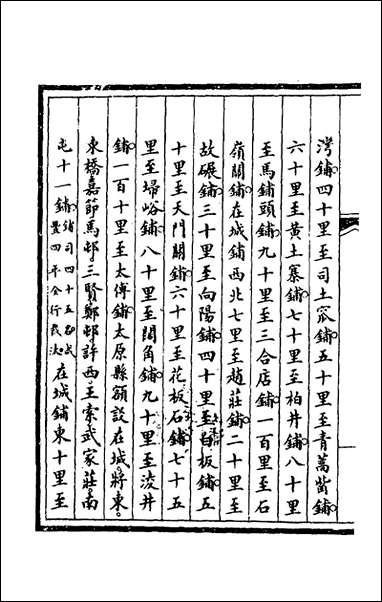 灣鋪四十里至司土窊鋪五十里至青蒿觜鋪
六十里至黃土寨鋪七十里至柏井鋪八十里
至馬鋪頭鋪九十里至三合店鋪一百里至石
嶺關鋪在城鋪西北七里至趙莊鋪二十里至
故碾鋪三十里至向陽鋪四十里至白板鋪五
十里至天門關鋪六十里至花板石鋪七十五
里至埽峪鋪八十里至閣角鋪九十里至凌井
鋪一百十里至太傅鋪太原縣額設在城將東
東橋嘉節馬邨三賢鄭邨許西王索武家莊南
屯十一鋪鋪司四十五名在城鋪東十里至